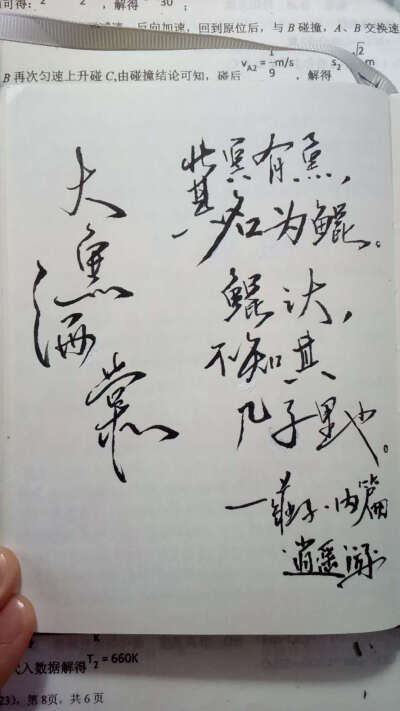 减速，反向加速，回到原位后，与 B 碰撞，A、B 交换速
B 再次匀速上升碰 C,由碰撞结论可知，碰后 vA2 = 1/9 m/s ，解得
大
鱼
海
棠
北冥有鱼，
其名为鲲。
鲲之大，
不知其
几千里也。
—莊子·内篇
逍遥游
入数据解得T2 = 660K
23)，第8页，共6页